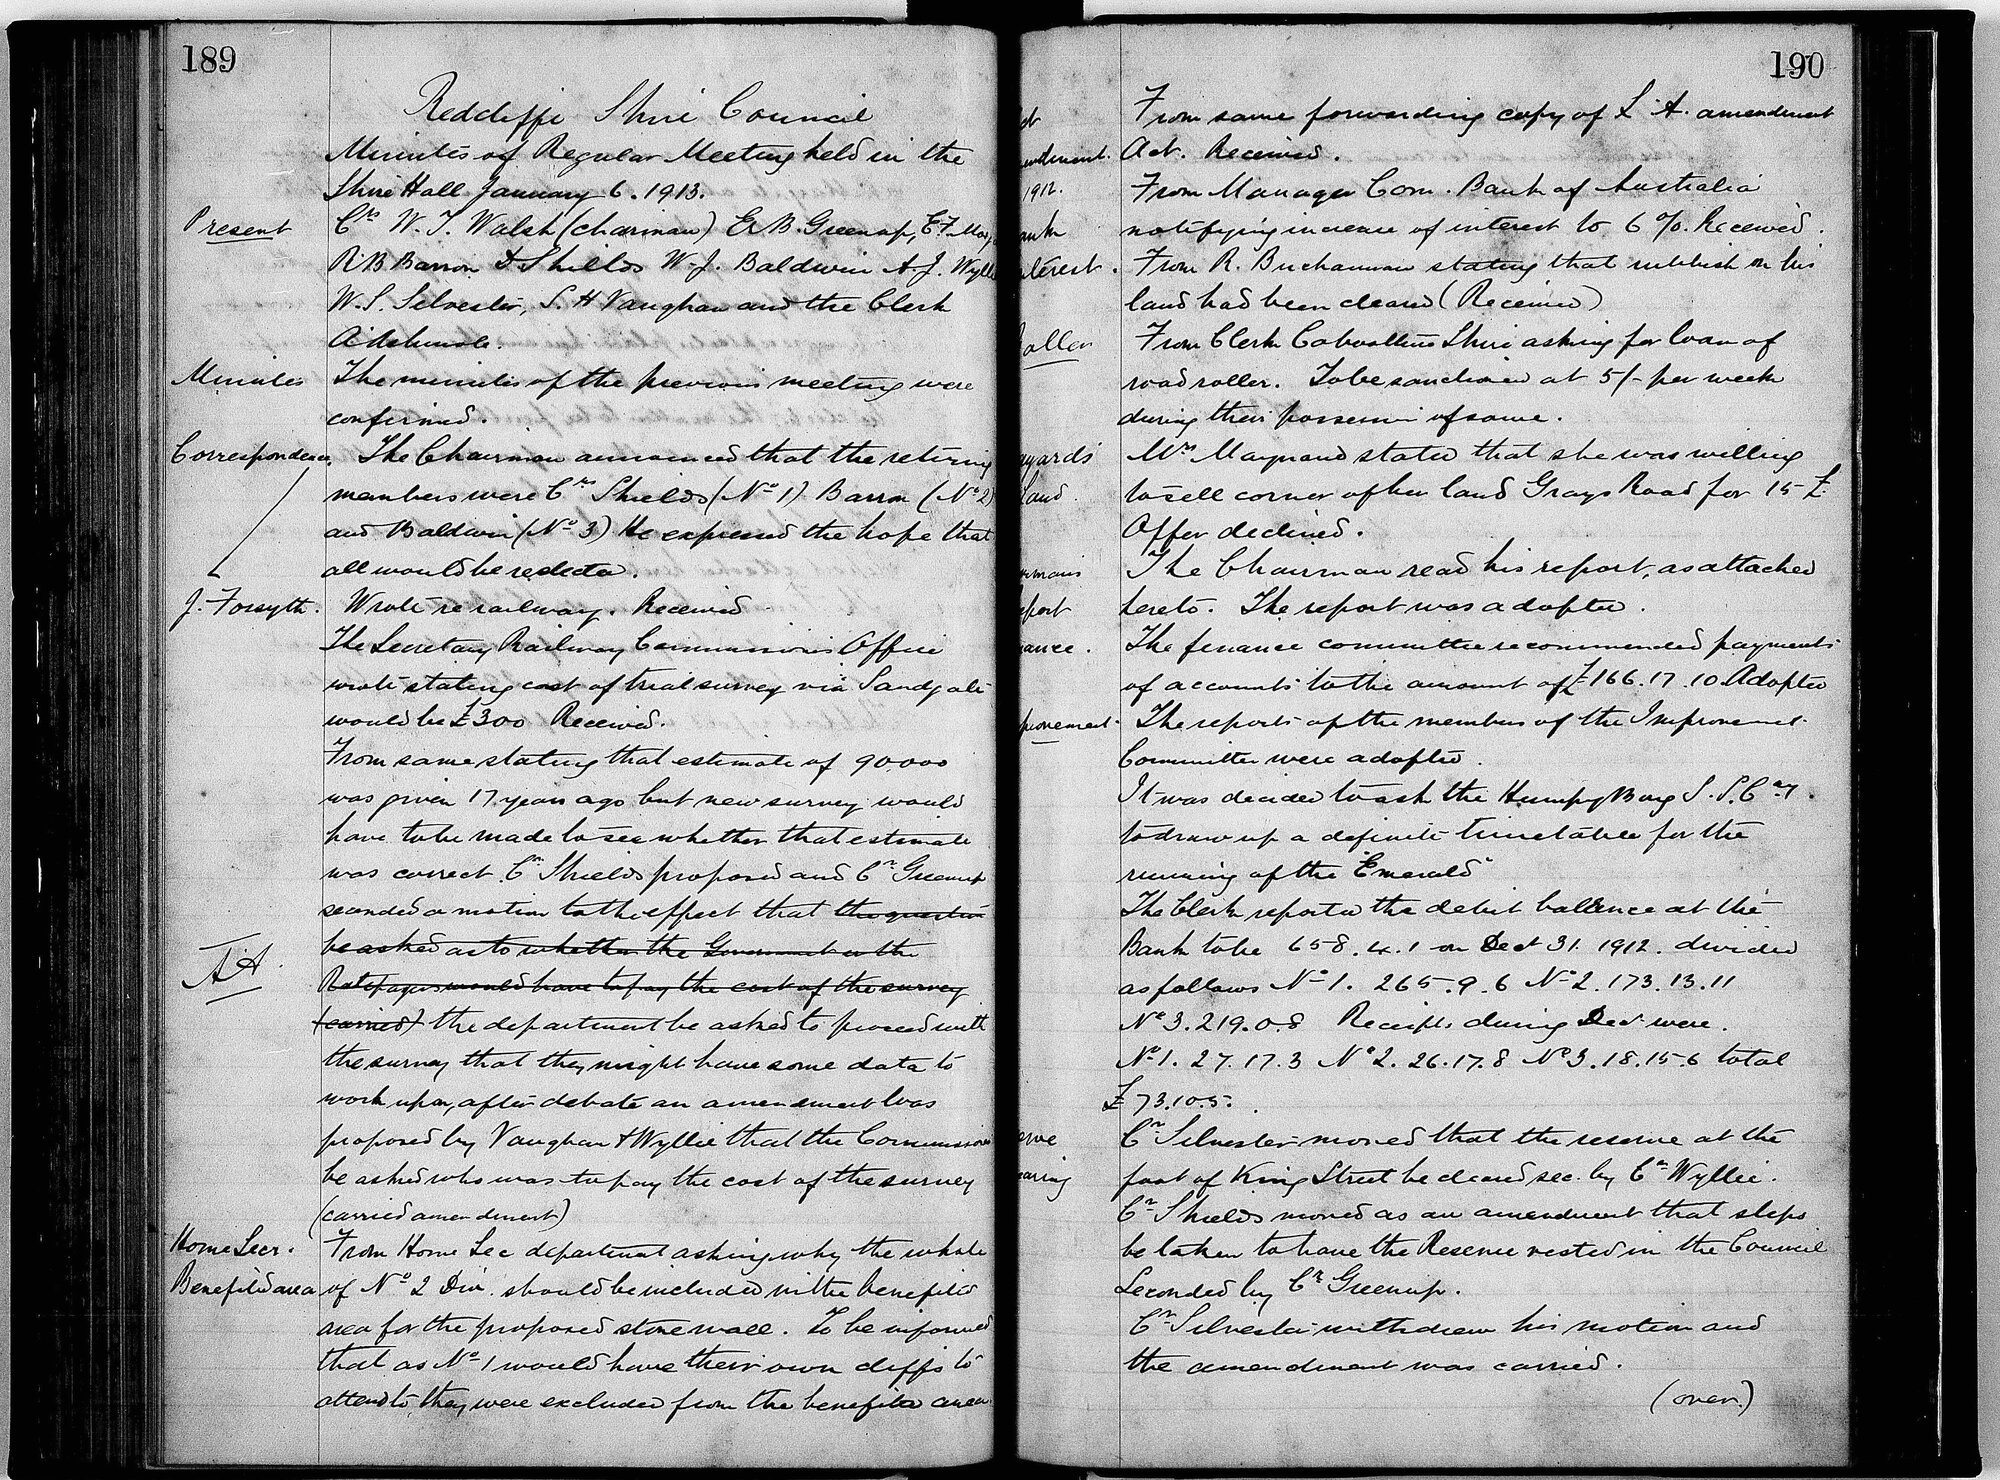 189
Redcliffe Shire Council
Minutes of Regular Meeting held in the
Shire Hall January 6. 1913.
Present Crs W. J. Walsh (chairman) E. B. Greenup, E F
R B Barron Shields W. J. Baldwin A. J. Wyllie
W. S. Silvester, S. H Vaughan and the Clerk
Minutes The minutes of the previous meeting were
confirmed.
Correspondence. The Chairman announced that the retiring
members were Crs Shields (No 1) Barron (No 2)
and Baldwin (No 3) He expressed the hope that
all would be reelected.
J. Forsyth. Wrote re railway. Received
The Secretary Railway Commissioners Office
wrote stating cost of trial survey via Sandgate
would be £300 Received.
From same stating that estimate of 90,000
was given 17 years ago but new survey would
have to be made to see whether that estimate
was correct. Cr Shields proposed and Cr Greenup
seconded a motion to the effect that the question
be asked as to whether the Government or the
Ratepayers would have to pay the cost of the survey
(carried) the department be asked to proceed with
the survey that they might have some data to
work upon, after debate an amendment was
proposed by Vaughan & Wyllie that the Commissioner
be asked who was to pay the cost of the survey
(carried amendment)
Home Secr. From Home Sec department asking why the whole
Benefited area of No 2 Div. should be included in the benefited
area for the proposed stone wall. To be informed
that as No 1 would have their own cliffs to
attend to they were excluded from the benefited area
190
From same forwarding copy of L. A. amendment
endment. Act. Received.
1912. From Manager Com. Bank of Australia
ank notifying increase of interest to 6%. Received.
nterest. From R. Buchanan stating that rubbish on his
land had been cleared (Received)
oller From Clerk Caboolture Shire asking for loan of
road roller. To be sanctioned at 5/- per week
during their possession of same.
Mrs Maynard stated that she was willing
Land. to sell corner of her land Grays Road for 15 £.
Offer declined.
irmans The Chairman read his report, as attached
eport hereto. The report was adopted.
nance. The finance committee recommended payments
of accounts to the amount of £166. 17. 10. Adopted
provement The reports of the members of the Improvement
Committee were adopted.
It was decided to ask the Humpy Bong S. S. Coy.
to draw up a definite timetable for the
running of the "Emerald"
The Clerk reported the debit ballence at the
Bank to be 658. 4. 1 on Dect 31. 1912. divided
as follows No 1. 265. 9. 6 No 2. 173. 13. 11
No 3. 219. 0. 8 Receipts during Dect were.
No 1. 27. 17. 3 No 2. 26. 17. 8 No 3. 18. 15. 6 total
£73. 10. 5.
erve Cr Silvester moved that the reserve at the
earing foot of King Street be cleared sec. by Cr Wyllie.
Cr Shields moved as an amendment that steps
be taken to have the Reserve vested in the Council
Seconded by Cr Greenup.
Cr Silvester withdrew his motion and
the amendment was carried.
(over.)